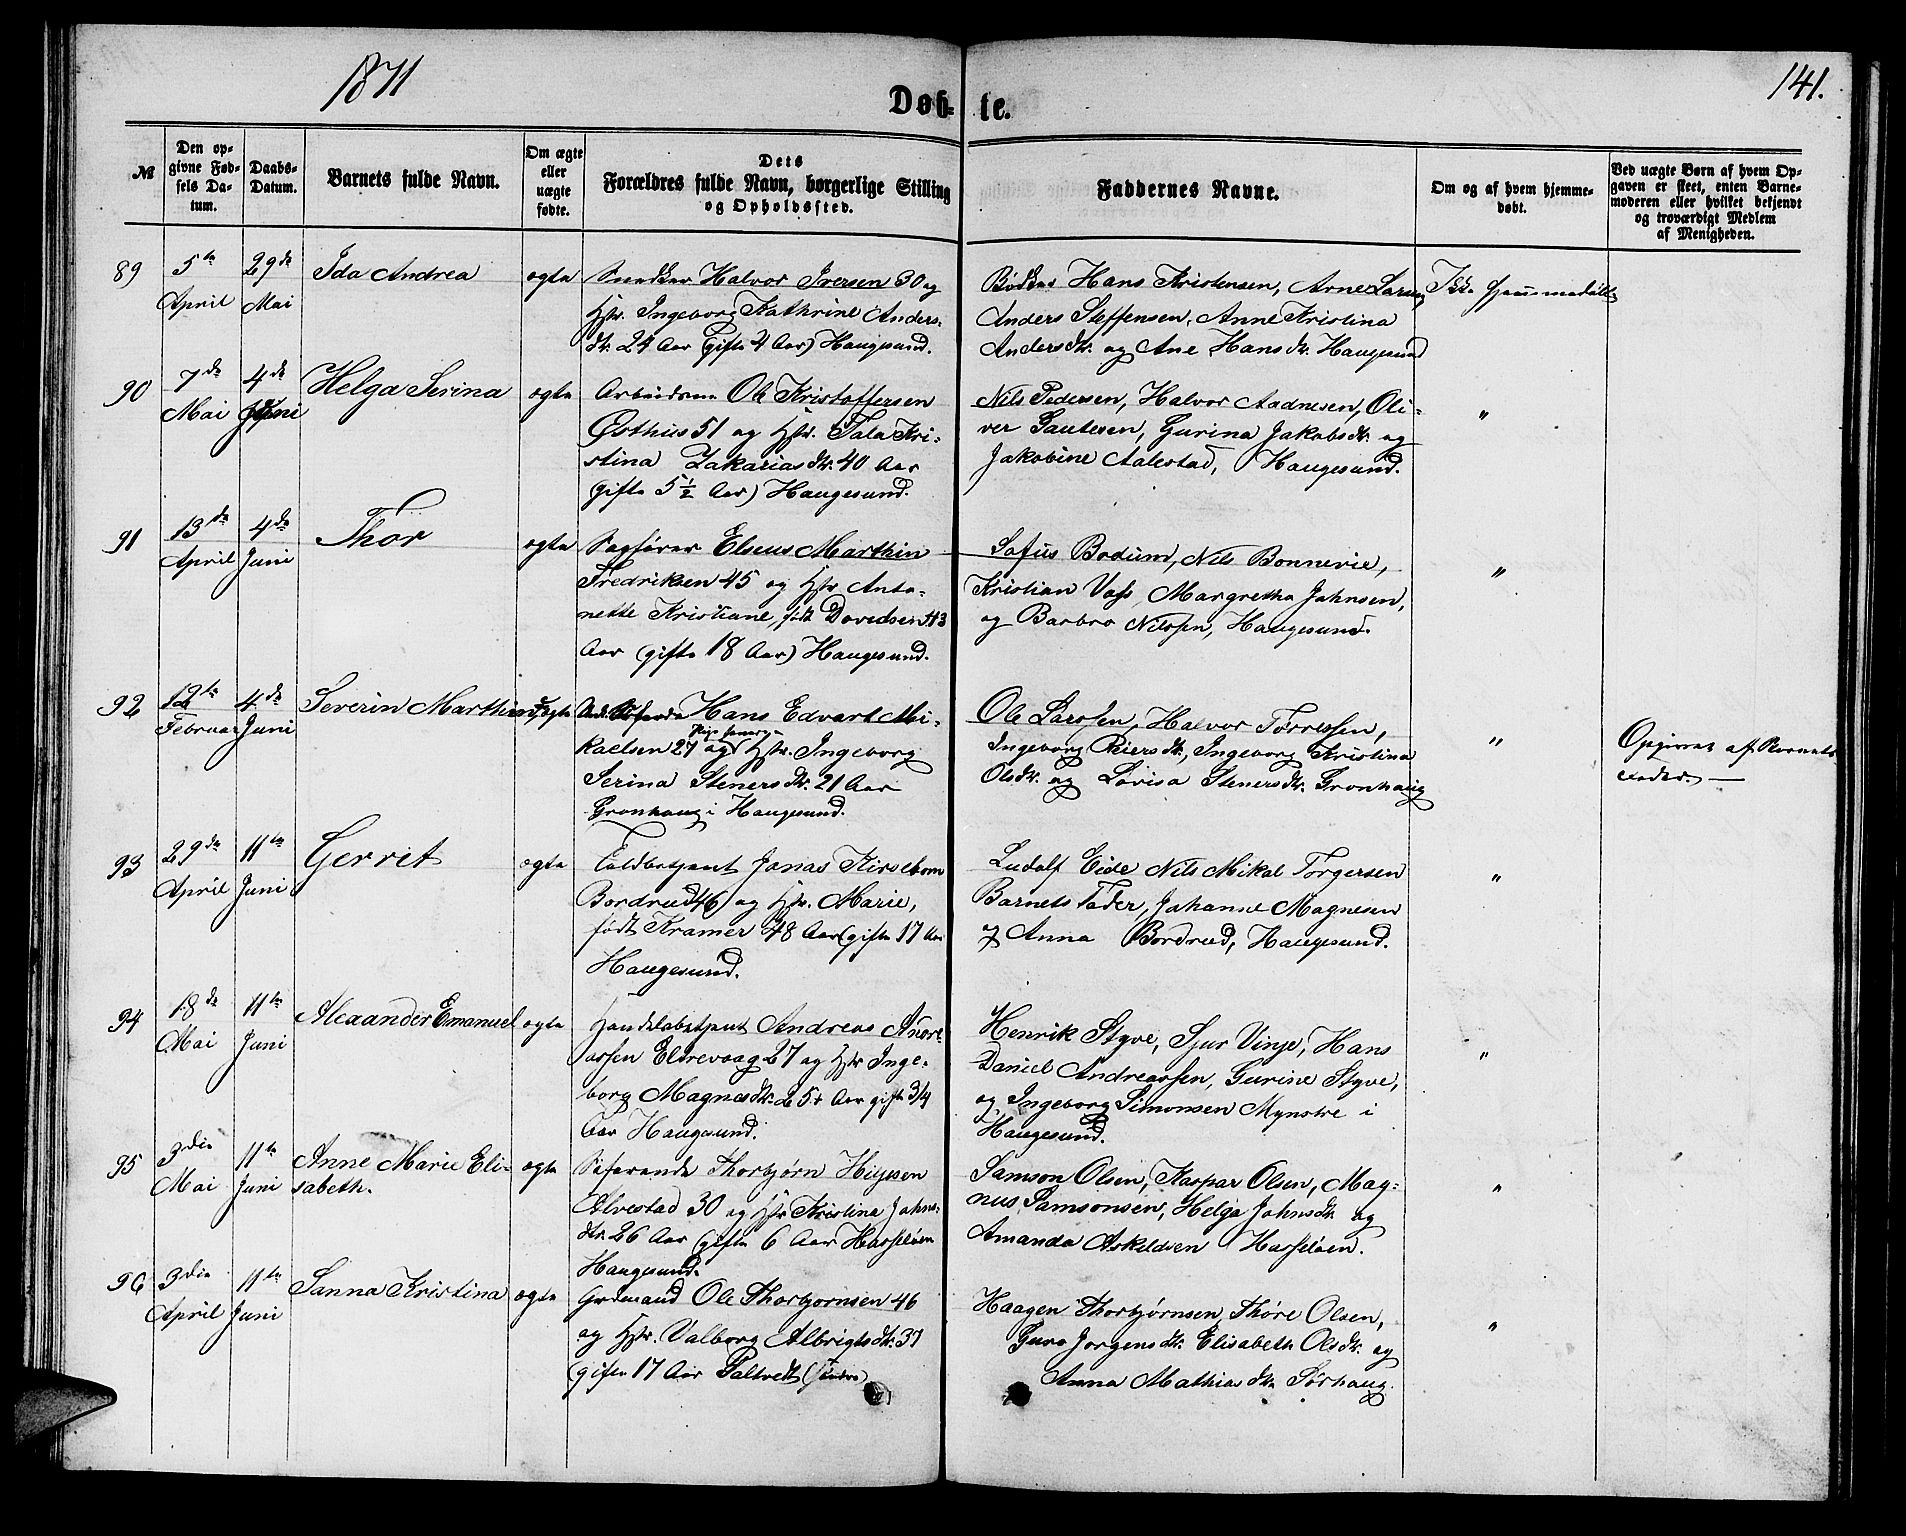 1871
Døb- te.
141.
№
Den op-
givne Fød-
sels Da-
tum.
Daabs-
Datum.
Barnets fulde Navn.
Om ægte
eller
uægte
fødte.
Dets
Forældres fulde Navn, borgerlige Stilling
og Opholdssted.
Faddernes Navne.
Om og af hvem hjemme-
døbt.
Ved uægte Børn af hvem Op-
gaven er skeet, enten Barne-
moderen eller hvilket bekjendt
og troværdigt Medlem
af Menigheden.
89
5te
April
29de
Mai
Ida Andrea
ægte
Halvor Iversen 30 og
Hstr. Ingeborg Kathrine Anders-
dtr. 24 Aar (gifte 4 Aar) Haugesund.
Bødker Hans Kristensen, Arne Larsen
Anders Steffensen, Anne Kristina
Andersdtr. og Ane Hansdtr. Haugesund
Ikke hjemmedøbt
90
7de
Mai
4de
Juni
Helga Serina
ægte
Arbeidsm Ole Kristoffersen
Østhus 51 og Hstr. Tala Kri-
stina Zakariasdtr. 40 Aar
(gifte 5 1/2 Aar) Haugesund.
Nils Pedersen, Halvor Aadnesen, Oli-
ver Gautesen, Gurina Jakobsdtr. og
Jakobine Aalestad, Haugesund.
"
91
13de
April
4de
Juni
Thor
ægte
Sagfører Elseus Marthin
Fredriksen 45 og Hstr Anto-
nette Kristiane, født Davidsen 43
Aar (gifte 18 Aar) Haugesund.
Sofus Bodum, Nils Bonnevie,
Kristian Vass, Margretha Johnsen,
og Barbro Nilssen, Haugesund.
"
92
12te
Februar
4de
Juni
Severin Marthin
uægte
Hans Edvart Mi-
kaelsen 27 og Ingeborg
Serina Stenersdtr. 21 Aar
Grønhaug i Haugesund.
Ole Larssen, Halvor Torressen,
Ingeborg Reiersdtr., Ingeborg Kristina
Olsdtr. og Lovisa Stenersdtr. Grønhaug
"
Opgivet af Barnets
Fader
93
29de
April
11te
Juni
Gerret
ægte
Toldbetjent Jonas Kirsebom
Bordrud 46 og Hstr. Marie,
født Kramer 48 Aar (gifte 17 Aar
Haugesund.
Ludolf Eide Nils Mikal Torgersen
Barnets Fader, Johanne Magnesen
og Anna Bordrud, Haugesund.
"
94
18de
Mai
11te
Juni
Alexander Emanuel
ægte
Handelsbetjent Andreas Andre-
assen Elvevaag 27 og Hstr Inge-
borg Magnesdtr. 25 Aar gifte 3/4
Aar Haugesund.
Henrik Styve, Sjur Vinje, Hans
Daniel Andreassen, Gurine Styve,
og Ingeborg Simonsen Mynstre i
Haugesund.
"
95
3die
Mai
11te
Juni
Anne Marie Eli-
sabeth.
ægte
Søfarende Thorbjørn
Alvestad 30 og Hstr Kristina Johns-
dtr. 26 Aar (gifte 6 Aar Hasseløen
Haugesund.
Samson Olsen, Kaspar Olsen, Mag-
nus Samsonsen, Helga Johnsdtr. og
Amanda Askeldsen Hasseløen.
"
96
3die
April
11te
Juni
Sanna Kristina
ægte
Grdmand Ole Thorbjørnsen 46
og Hstr. Valborg Albrigtsdtr. 37
(gifte 17 Aar Saltvedt (Søndre)
Haagen Thorbjørnsen, Thore Olsen,
Guro Jorgensdtr. Elisabeth Olsdtr. og
Anna Mathiasdtr. Sørhaug.
"